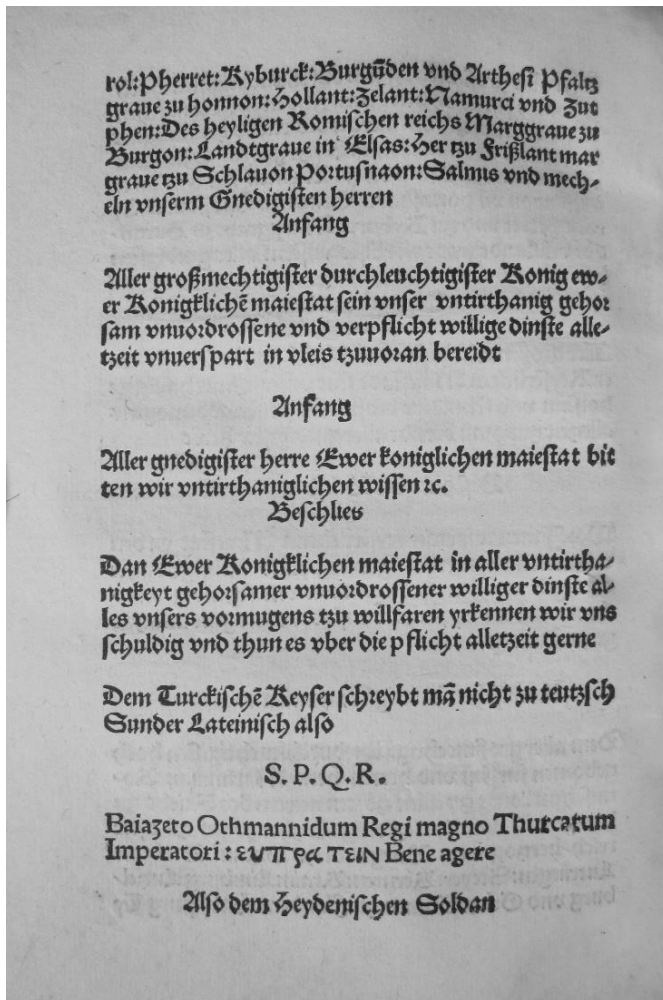 rol:Pherret:Kyburck:Burgūden vnd Arthesī Pfaltz
graue zu honnon:Hollant:Zelant:Namurci vnd Zut
phen:Des heyligen Romischen reichs Marggraue zu
Burgon:Landtgraue in Elsas:Her tzu Frißlant mar
graue tzu Schlauon Portusnaon:Salmis vnd mech⸗
eln vnserm Gnedigisten herren
Anfang
Aller großmechtigister durchleuchtigister Konig ew⸗
er Konigklichē maiestat sein vnser vntirthanig gehor
sam vnuordrossene vnd verpflicht willige dinste alle⸗
tzeit vnuerspart in vleis tzuuoran bereidt
Anfang
Aller gnedigister herre Ewer koniglichen maiestat bit
ten wir vntirthaniglichen wissen ⁊c.
Beschlies
Dan Ewer Konigklichen maiestat in aller vntirtha⸗
nigkeyt gehorsamer vnuordrossener williger dinste al⸗
les vnsers vormugens tzu willfaren yrkennen wir vns
schuldig vnd thun es vber die pflicht alletzeit gerne
Dem Turckischē Keyser schreybt mā nicht zu teutzsch
Sunder Lateinisch also
S. P. Q. R.
Baiazeto Othmannidum Regi magno Thurcarum
Imperatori: ευπρα τειν Bene agere
Also dem Heydenischen Soldan